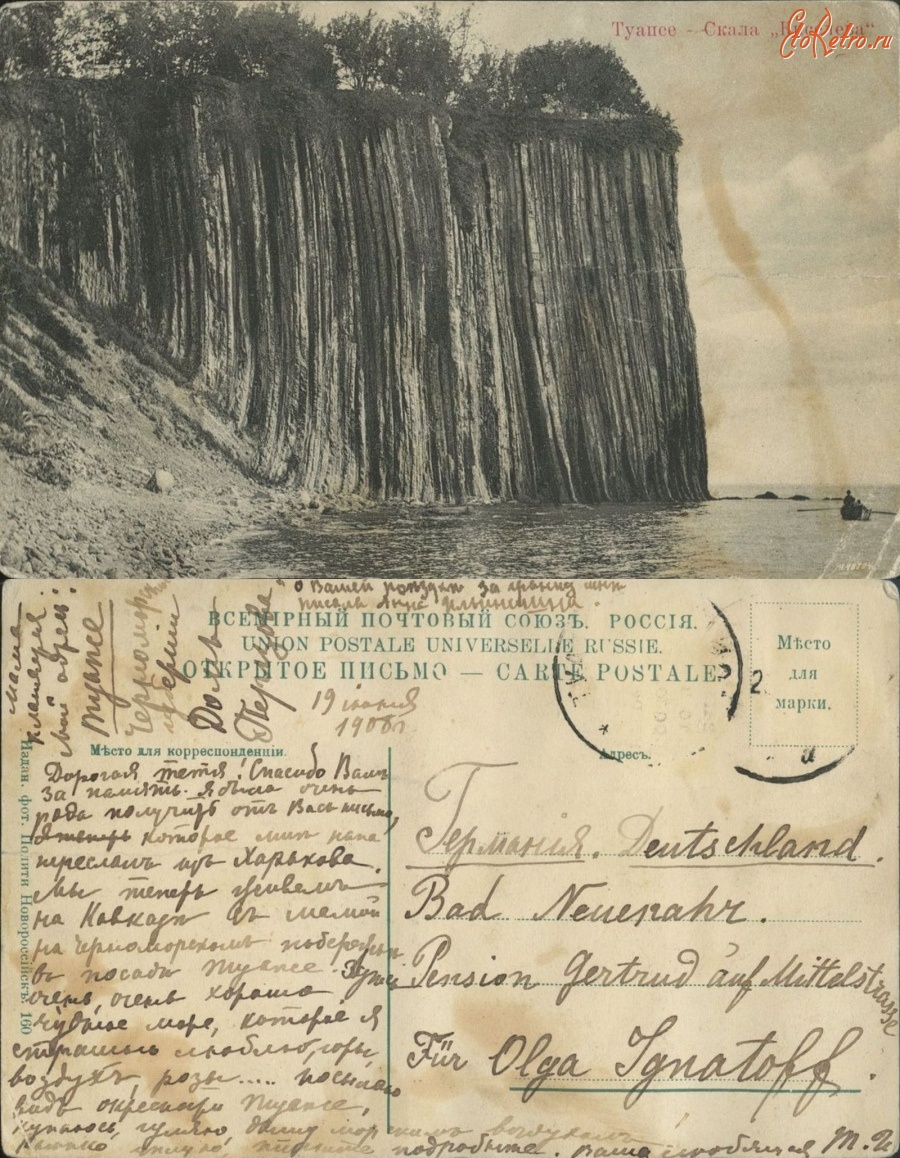 Туапсе - Скала
EtoRetro.ru
о Вашей за
писала Анна Ильинишна.
ВСЕМІРНЫЙ ПОЧТОВЫЙ СОЮЗЪ. РОССІЯ.
UNION POSTALE UNIVERSELLE RUSSIE.
ОТКРЫТОЕ ПИСЬМО — CARTE POSTALE
Мѣсто
для
марки.
мама
мой адрес:
Туапсе
Домъ
19 іюня
1908 г.
Мѣсто для корреспонденціи.
Адресъ.
Издан. фот. Новороссійскъ. 160
Дорогая тетя! Спасибо Вамъ
за память. Я была очень
рада получить отъ Васъ письмо,
которое мнѣ папа
переслалъ изъ Харькова.
Мы теперь живемъ
на Кавказѣ съ мамой
на Черноморскомъ побережьи
въ посадѣ Туапсе. Здѣсь
очень, очень хорошо
чудное море, которое я
страшно люблю, горы,
воздухъ, розы..... посылаю
видъ окрестности Туапсе,
купаюсь, гуляю, дышу морскимъ воздухомъ
пишите подробнѣе. Ваша любящая Т. И
Германія. Deutschland.
Bad Neuenahr.
Pension Gertrud auf Mittelstrasse
Für Olga Ignatoff.